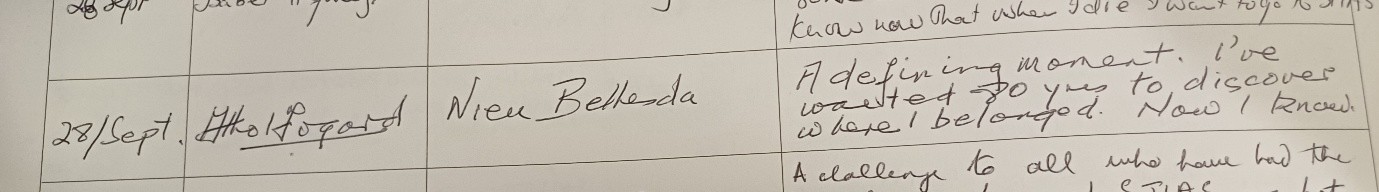 28 Sept
know now that when I die I want to go to
28/Sept.
Nieu Bethesda
A defining moment. I've
waited 50 yrs to discover
where I belonged. Now I know.
A challenge to all who have had the
STIAS